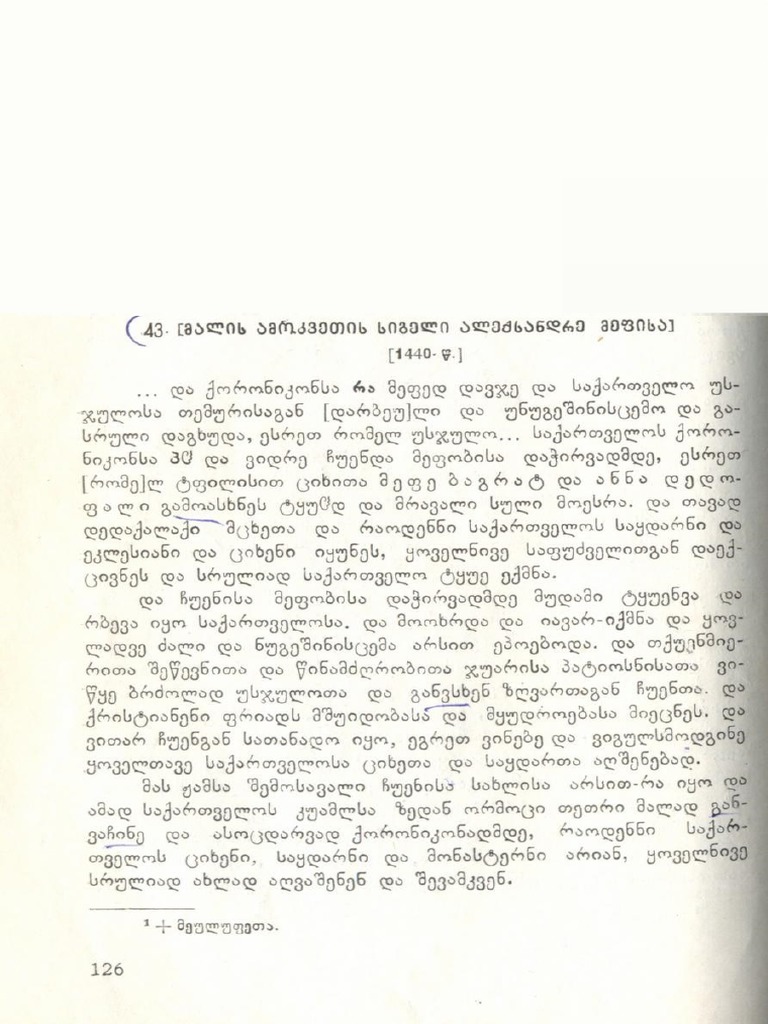 43. [ᲛᲐᲚᲘᲡ ᲐᲛᲝᲙᲕᲔᲗᲘᲡ ᲡᲘᲒᲔᲚᲘ ᲐᲚᲔᲥᲡᲐᲜᲓᲠᲔ ᲛᲔᲤᲘᲡᲐ]
[1440 წ.]
... და ქორონიკონსა რა მეფედ დავჯე და საქართველო უს-
ჯულოსა თემურისაგან [დარბეუ]ლი და უნუგეშინისცემო და გა-
სრული დაგხუდა, ესრეთ რომელ უსჯულო... საქართველოს ქორო-
ნიკონსა და ვიდრე ჩუენდა მეფობისა დაჭირვადმდე, ესრეთ
[რომე]ლ ტფილისით ციხითა მეფე ბაგრატ და ანნა დედო-
ფალი გამოასხნეს ტყუჱდ და მრავალი სული მოესრა. და თავად
დედაქალაქი მცხეთა და რაოდენნი საქართველოს საყდარნი და
ეკლესიანი და ციხენი იყუნეს, ყოველნივე საფუძველითგან დაექ-
ცივნეს და სრულიად საქართველო ტყუე ექმნა.
და ჩუენისა მეფობისა დაჭირვადმდე მუდამი ტყუენვა და
რბევა იყო საქართველოსა. და მოოხრდა და იავარ-იქმნა და ყოვ-
ლადვე ძალი და ნუგეშინისცემა არსით ეპოებოდა. და თქუენმიე-
რითა შეწევნითა და წინამძღრობითა ჯუარისა პატიოსნისათა ვი-
წყე ბრძოლად უსჯულოთა და განვსხენ ზღვართაგან ჩუენთა. და
ქრისტიანენი ფრიადს მშუიდობასა და მყუდროებასა მიეცნეს. და
ვითარ ჩუენგან სათანადო იყო, ეგრეთ ვინებე და ვიგულსმოდგინე
ყოველთავე საქართველოსა ციხეთა და საყდართა აღშენებად.
მას ჟამსა შემოსავალი ჩუენისა სახლისა არსით-რა იყო და
ამად საქართველოს კუამლსა ზედან ორმოცი თეთრი მალად გან-
ვაჩინე და ასოცდარვად ქორონიკონადმდე, რაოდენნი საქარ-
თველოს ციხენი, საყდარნი და მონასტერნი არიან, ყოველნივე
სრულიად ახლად აღვაშენენ და შევამკვენ.
¹ + მეულუფეთა.
126